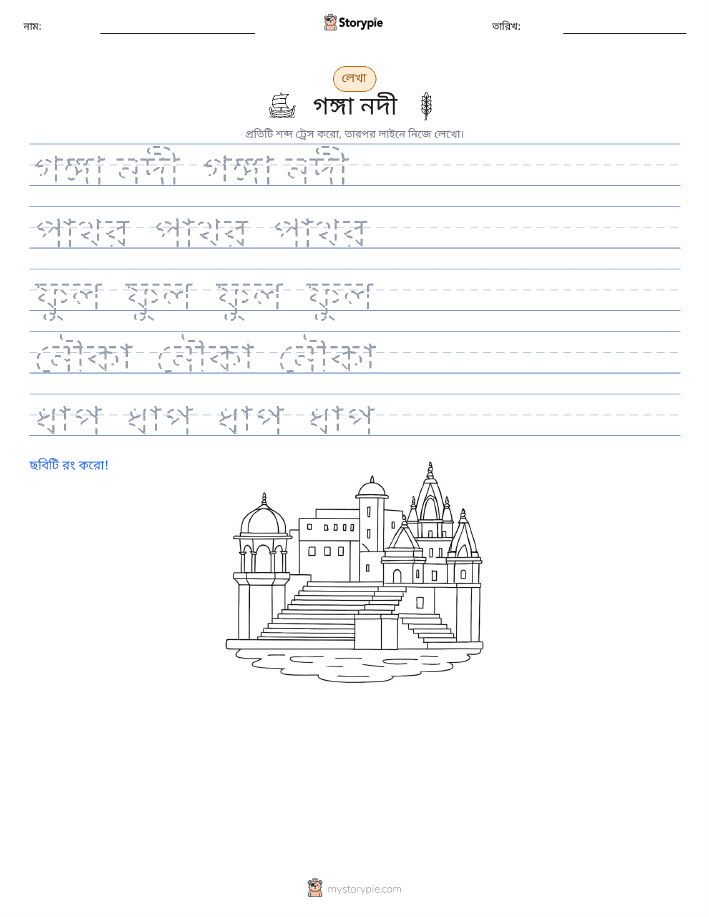 নাম:
Storypie
তারিখ:
লেখা
গঙ্গা নদী
প্রতিটি শব্দ ট্রেস করো, তারপর লাইনে নিজে লেখো।
গঙ্গা নদী গঙ্গা নদী
পাথর পাথর পাথর
ফুল ফুল ফুল ফুল
নৌকা নৌকা নৌকা
ধাপ ধাপ ধাপ ধাপ
ছবিটি রং করো!
mystorypie.com